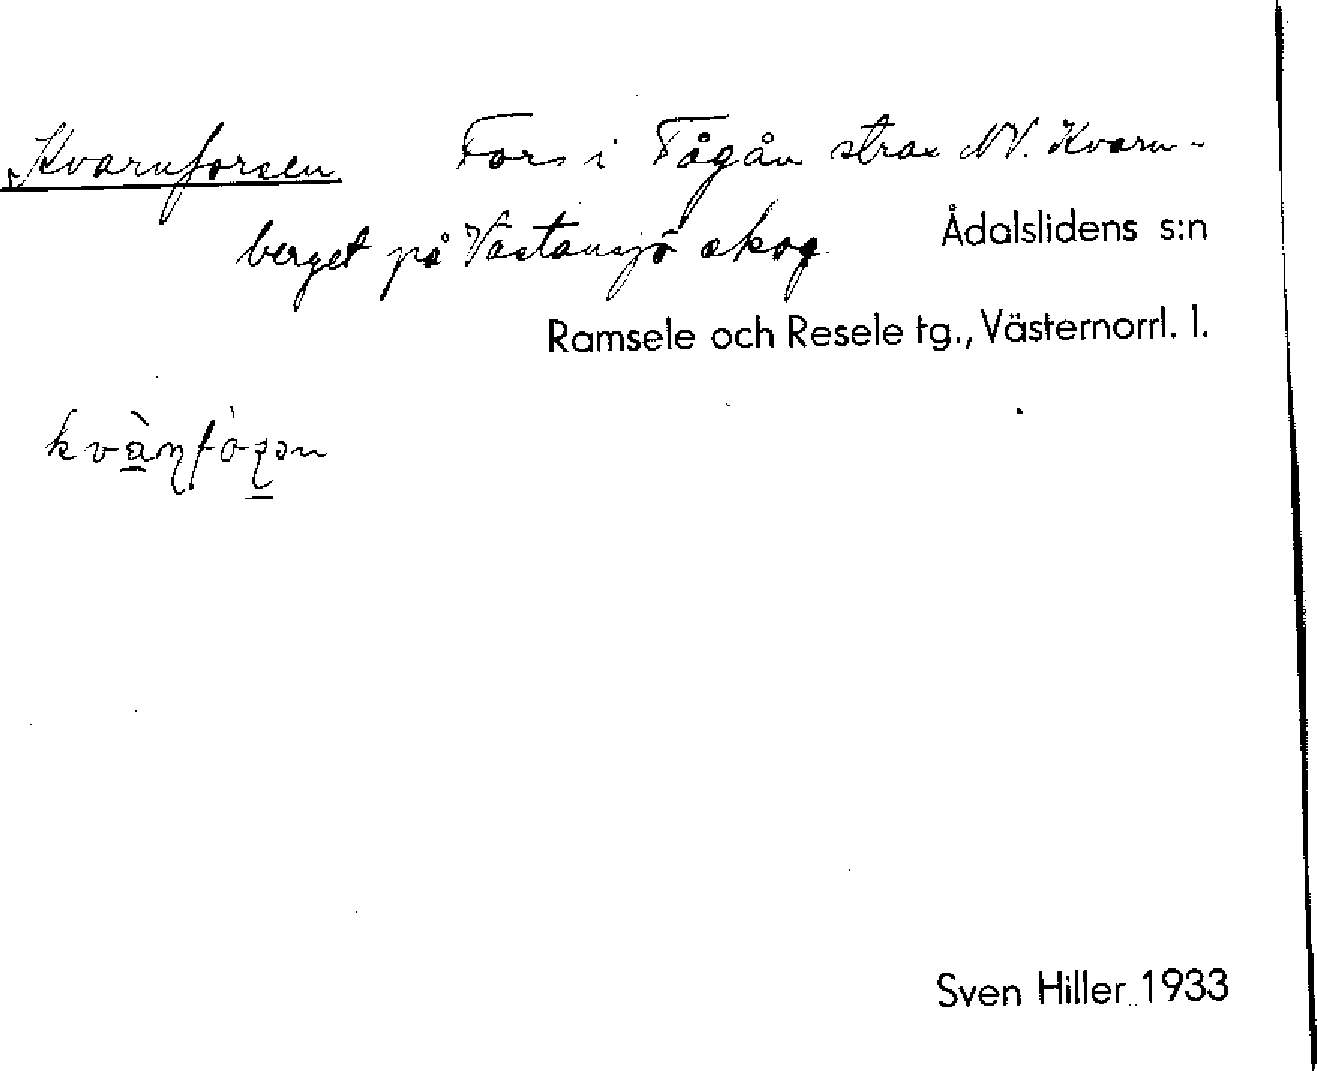 Kvarnforsen Fors i Tågån strax NV. Kvarn-
berget på Västansjö skog.
Ådalslidens s:n
Ramsele och Resele tg., Västernorrl. l.
Sven Hiller 1933